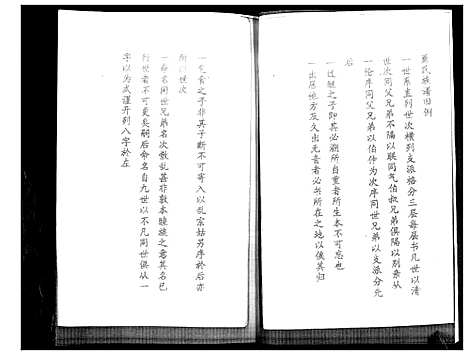 氏族谱凡例
一世系直列世次横列支派格分三层每层书几世以清
世次同父兄弟不隔以联同气伯叔兄弟俱隔以别亲从
一伦序同父兄弟以伯仲为次序同世兄弟以支派分先
后
一过继之子即其必溯所自重者所生本不可忘也
一出居他方及久出无音者必书所在之地以俟其归
一无嗣之子非其子断不可寄入以乱宗姑另序於后亦
所世次
一命名同世兄弟名次散乱甚非敦本睦族之意其名已
行世者不可更矣嗣后命名自九世以不凡同世俱从一
字以为式谨开列八字於左